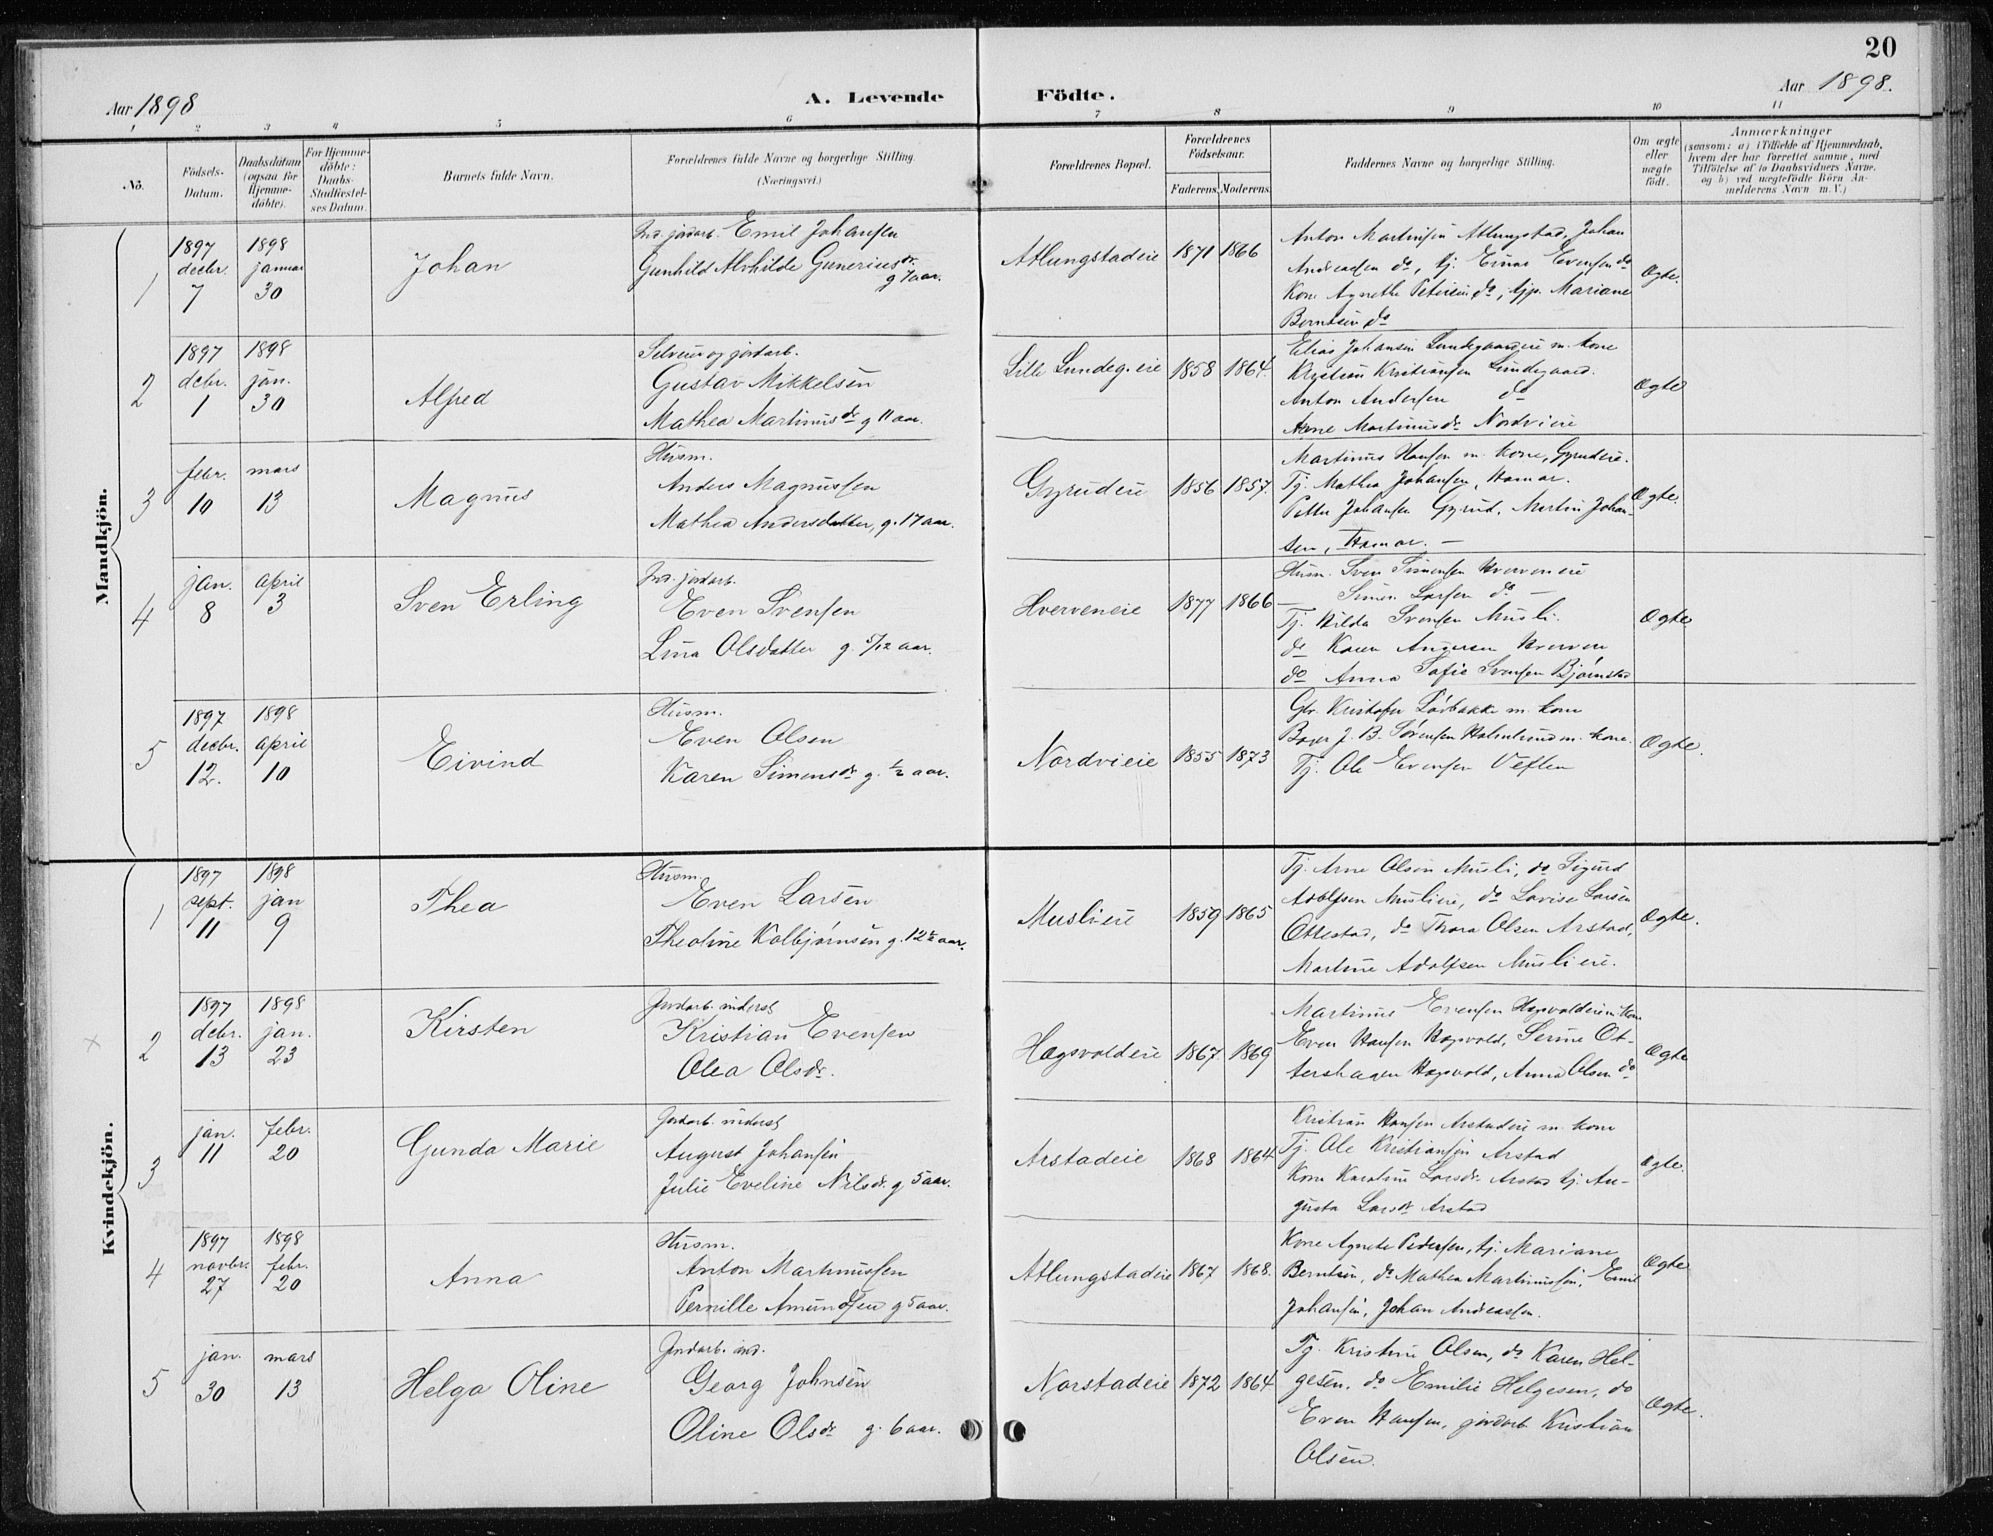 20
Aar 1898
A. Levende Födte.
Aar 1898.
1 2 3 4 5 6 7 8 9 10 11
No.
Födsels-Datum.
Daabsdatum (ogsaa för Hjemme-döbte).
For Hjemme-döbte: Daabs-Stadfæstel-ses Datum.
Barnets fulde Navn.
Forældrenes fulde Navne og borgerlige Stilling. (Næringsvei.)
Forældrenes Bopæl.
Forældrenes Födselsaar.
Faderens. Moderens.
Faddernes Navne og borgerlige Stilling.
Om ægte eller uægte födt.
Anmærkninger (saasom: a) i Tilfælde af Hjemmedaab, hvem der har forrettet samme, med Tilföielse af to Daabsvidners Navne, og b) ved uægtefödte Börn An-melderens Navn m. V.)
Mandkjön.
1
1897 decbr. 7
1898 januar 30
Johan
Ind. jordarb. Emil Johansen
Gunhild Alvhilde Gunerius dr. g 7 aar.
Atlungstadeie
1871 1866
Anton Martinsen Atlungstad, Johan
Andreassen do, tj. Einar Evensen do
Kone Agnethe Petersen do, tjp. Mariane
Berntsen do
Ægte.
2
1897 debr. 1
1898 jan. 30
Alfred
Selveier og jordarb.
Gustav Mikkelsen
Mathea Martinus dr g 11 aar.
Lille Lundeg. eie
1858 1864.
Elias Johansen Lundegaardeie m. kone
Kristian Kristiansen Lundegaard.
Anton Andersen do
Anne Martinusdr Nordvieie
Ægte
3
febr. 10
mars 13
Magnus
Husm.
Anders Magnussen
Mathea Andersdatter, g. 17 aar.
Gyrudeie
1856 1857.
Martinus Hansen m. kone, Gyrudeie.
Tj. Mathea Johansen, Hamar.
Petter Johansen Gyrud, Martin Johan-
sen, Hamar. —
Ægte.
4
jan. 8
april 3
Sven Erling
Ind. jordarb.
Even Svensen
Lina Olsdatter g. 5/12 aar.
Hverveneie
1877 1866
Husm. Sven Simensen Hverveneie
— Simen Larsen do —
Tj. Hilda Svensen Musli.
do Karen Hverven
do Anna Sofie Svensen Bjørnstad
Ægte
5
1897 decbr. 12.
1898 april 10
Eivind
Husm.
Even Olsen
Karen Simensdr g. ½ aar.
Nordvieie
1855 1873
Gbr. Kristofer m. kone
J. B. Sørensen m. kone.
Tj. Ole Evensen Veflen
Ægte.
Kvindekjön.
1
1897 sept. 11
1898 jan 9
Thea
Husm.
Even Larsen
Theoline Kolbjørnsen g. 12½ aar.
Muslieie
1859 1865
Tj. Arne Olsen Musli, do Sigurd
Adolfsen Muslieie, do Lovise Larsen
Ottestad, do Thora Olsen Arstad,
Martine Adolfsen Muslieie.
Ægte.
2
1897 debr. 13
1898 jan. 23
Kirsten
Jordarb. inderst
Kristian Evensen
Olea Olsdr.
Hagsvoldeie
1867. 1869
Martinus Evensen Hagsvoldeie m. kone
Even Hansen Hagsvold, Serine Ot-
tershagen Hagsvold, Anna Olsen do
Ægte
3
jan. 11
febr. 20
Gunda Marie
Jordarb. inderst
August Johansen
Julie Eveline Nilsdr. g 5 aar.
Arstadeie
1868 1864
Kristian Hansen Arstadeie m. kone
Tj. Ole Kristiansen Arstad
Kone Karoline Larsdr. Arstad tj. Au-
gusta Larsdr Arstad
Ægte.
4
1897 novbr. 27
1898 febr. 20
Anna
Husm.
Anton Martinussen
Pernille Amundsen g 5 aar.
Atlungstadeie
1867 1868.
Kone Agnete Pedersen, tj. Mariane
Berntsen, do Mathea Martinussen, Emil
Johansen, Johan Andreassen.
Ægte
5
jan. 30
mars 13
Helga Oline
Jordarb. ind.
Georg Johnsen
Oline Olsdr g. 6 aar.
Narstadeie
1872 1864
Tj. Kristine Olsen, do Karen Hel-
gesen, do Emilie Helgesen, do
Even Hansen, jordarb. Kristian
Olsen.
Ægte.